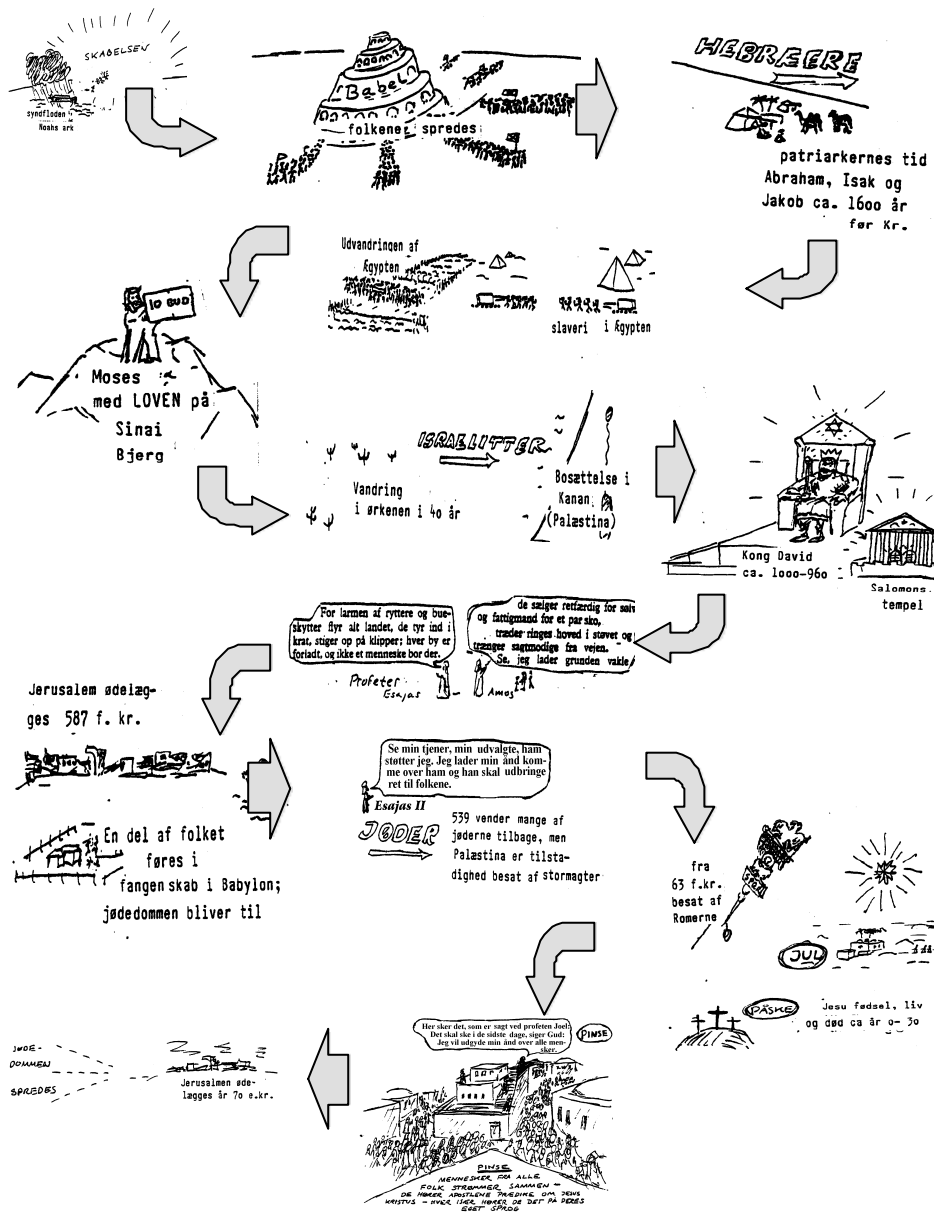 SKABELSEN
syndfloden
Noahs ark
Babel
folkene spredes
HEBRÆERE
patriarkernes tid
Abraham, Isak og
Jakob ca. 1600 år
før Kr.
Udvandringen af
Ægypten
slaveri i Ægypten
10 BUD
Moses
med LOVEN på
Sinai
Bjerg
ISRAELITTER
Vandring
i ørkenen i 40 år
Bosættelse i
Kanan
(Palæstina)
Kong David
ca. 1000-960
Salomons
tempel
For larmen af ryttere og bue-
skytter flyr alt landet, de tyr ind i
krat, stiger op på klipper; hver by er
forladt, og ikke et menneske bor der.
Profeter
Esajas
de sælger retfærdig for sølv
og fattigmand for et par sko,
træder ringes hoved i støvet og
trænger sagtmodige fra vejen.
Se, jeg lader grunden vakle
Amos
Jerusalem ødelæg-
ges 587 f. kr.
En del af folket
føres i
fangenskab i Babylon;
jødedommen bliver til
Se min tjener, min udvalgte, ham
støtter jeg. Jeg lader min ånd kom-
me over ham og han skal udbringe
ret til folkene.
Esajas II
JØDER
539 vender mange af
jøderne tilbage, men
Palæstina er tilsta-
dighed besat af stormagter
fra
63 f.kr.
besat af
Romerne
JUL
PÅSKE
Jesu fødsel, liv
og død ca år 0- 30
Her sker det, som er sagt ved profeten Joel:
Det skal ske i de sidste dage, siger Gud:
Jeg vil udgyde min ånd over alle men-
sker.
PINSE
PINSE
MENNESKER FRA ALLE
FOLK STRØMMER SAMMEN -
DE HØRER APOSTLENE PRÆDIKE OM JESUS
KRISTUS - HVER ISÆR HØRER DE DET PÅ DERES
EGET SPROG
Jerusalmen øde-
lægges år 70 e.kr.
JØDE-
DOMMEN
SPREDES